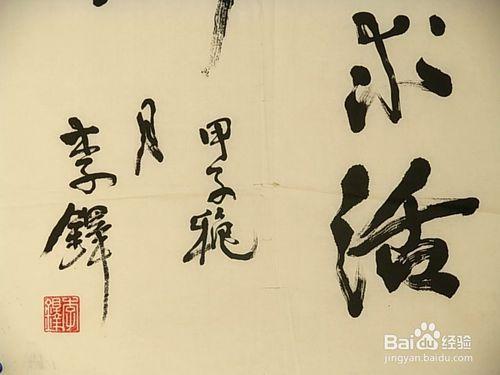 求活
甲子
月
李鐸
李鐸
Baidu 经验
jingyan.baidu.com